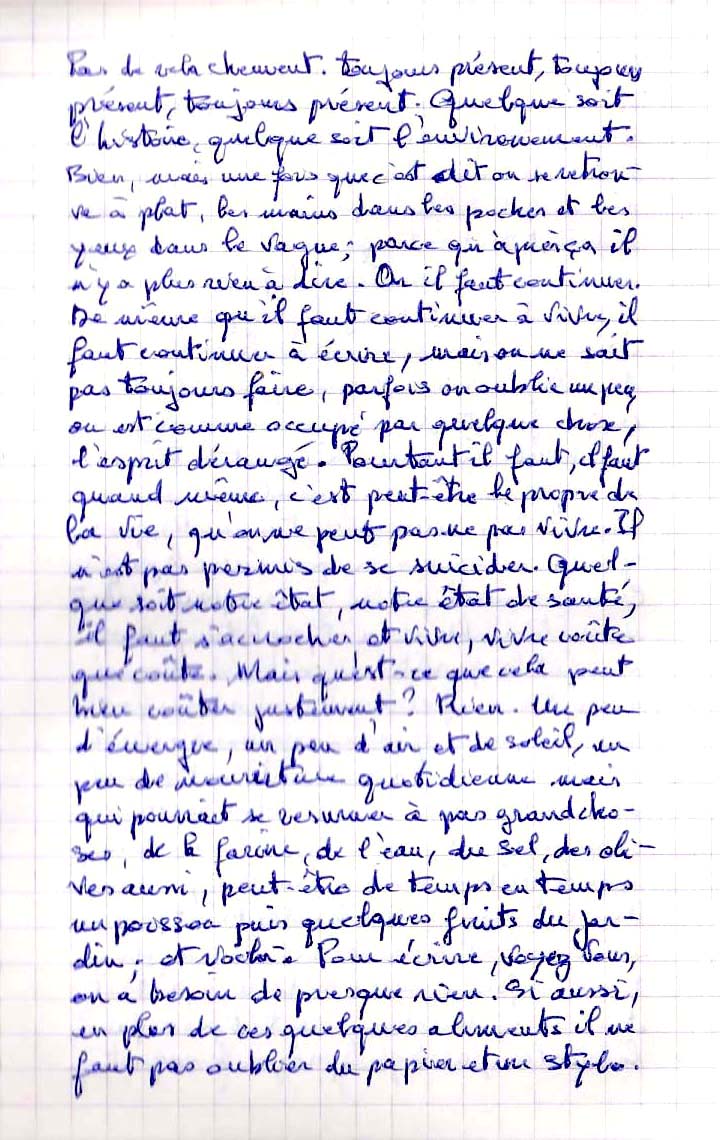 Pas de relachement. toujours présent, toujours
présent, toujours présent. Quelque soit
l'histoire, quelque soit l'environnement.
Bien, mais une fois que c'est dit on se retrou-
ve à plat, les mains dans les poches et les
yeux dans le vague, parce qu'à part ça il
n'y a plus rien à dire. Or il faut continuer.
De même qu'il faut continuer à vivre, il
faut continuer à écrire, mais on ne sait
pas toujours faire, parfois on oublie un peu,
on est comme occupé par quelque chose,
l'esprit dérangé. Pourtant il faut, il faut
quand même, c'est peut-être le propre de
la vie, qu'on ne peut pas ne pas vivre. Il
n'est pas permis de se suicider. Quel-
que soit notre état, notre état de santé,
il faut s'accrocher et vivre, vivre coûte
que coûte. Mais qu'est-ce que cela peut
bien coûter justement? Rien. Un peu
d'énergie, un peu d'air et de soleil, un
peu de nourriture quotidienne mais
qui pourrait se résumer à pas grand cho-
ses, de la farine, de l'eau, du sel, des oli-
ves aussi, peut-être de temps en temps
un poisson puis quelques fruits du jar-
din; et voilà. Pour écrire, voyez vous,
on a besoin de presque rien. Si aussi,
en plus de ces quelques aliments il ne
faut pas oublier du papier et un stylo.